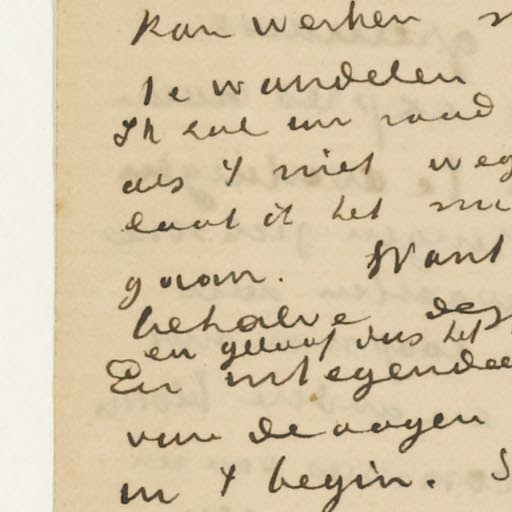 kan werken
te wandelen
Ik zal uw raad
als 't niet weg
laat ik het me
gaan. Want
behalve des
en geloof dus het
En integendee
van de oogen
in 't begin.